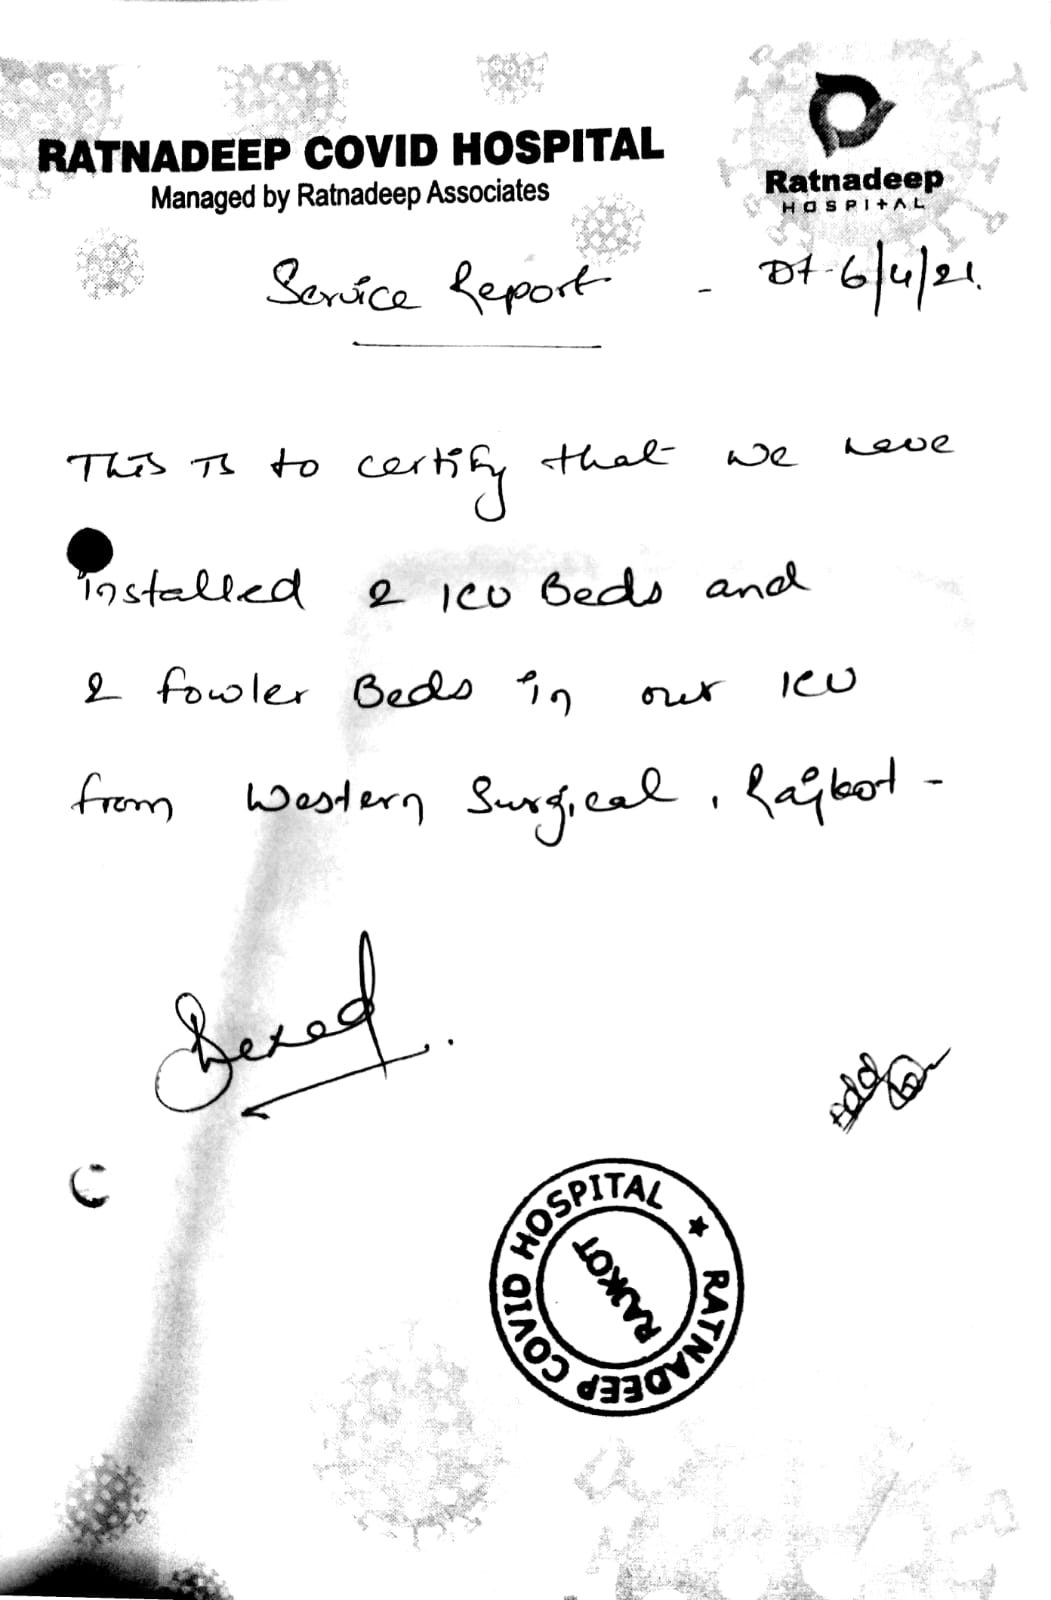 RATNADEEP COVID HOSPITAL
Managed by Ratnadeep Associates
Ratnadeep
HOSPITAL
Service Report - Dt-6/4/21.
This is to certify that we have
installed 2 ICU Beds and
2 fowler Beds in our ICU
from Western Surgical, Rajkot -
RATNADEEP COVID HOSPITAL ★
RAJKOT